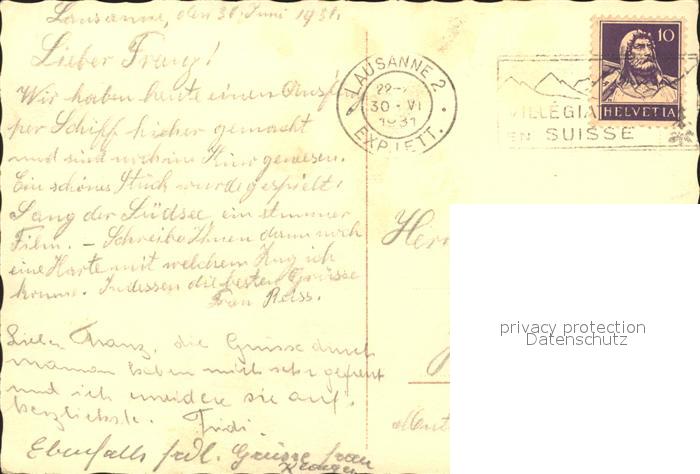 Lausanne, den 30. Juni 1931.
Lieber Franz!
Wir haben heute einen Ausfl
per Schiff hieher gemacht
und sind noch im Kino gewesen.
Ein schönes Stück wurde gespielt,
Sang der Südsee, ein stummer
Film. – Schreibe Ihnen dann noch
eine Karte mit welchem Zug ich
komme. Indessen die besten Grüsse
Frau Reiss.
Lieber Franz, die Grüsse durch
maman haben mich sehr gefreut
und ich erwidere sie auf
herzlichste. Fridi.
Ebenfalls frdl. Grüsse Frau
LAUSANNE 2
22-
30-VI
1931
EXP. LETT.
VILLÉGIA
EN SUISSE
10
HELVETIA
Herr
privacy protection
Datenschutz